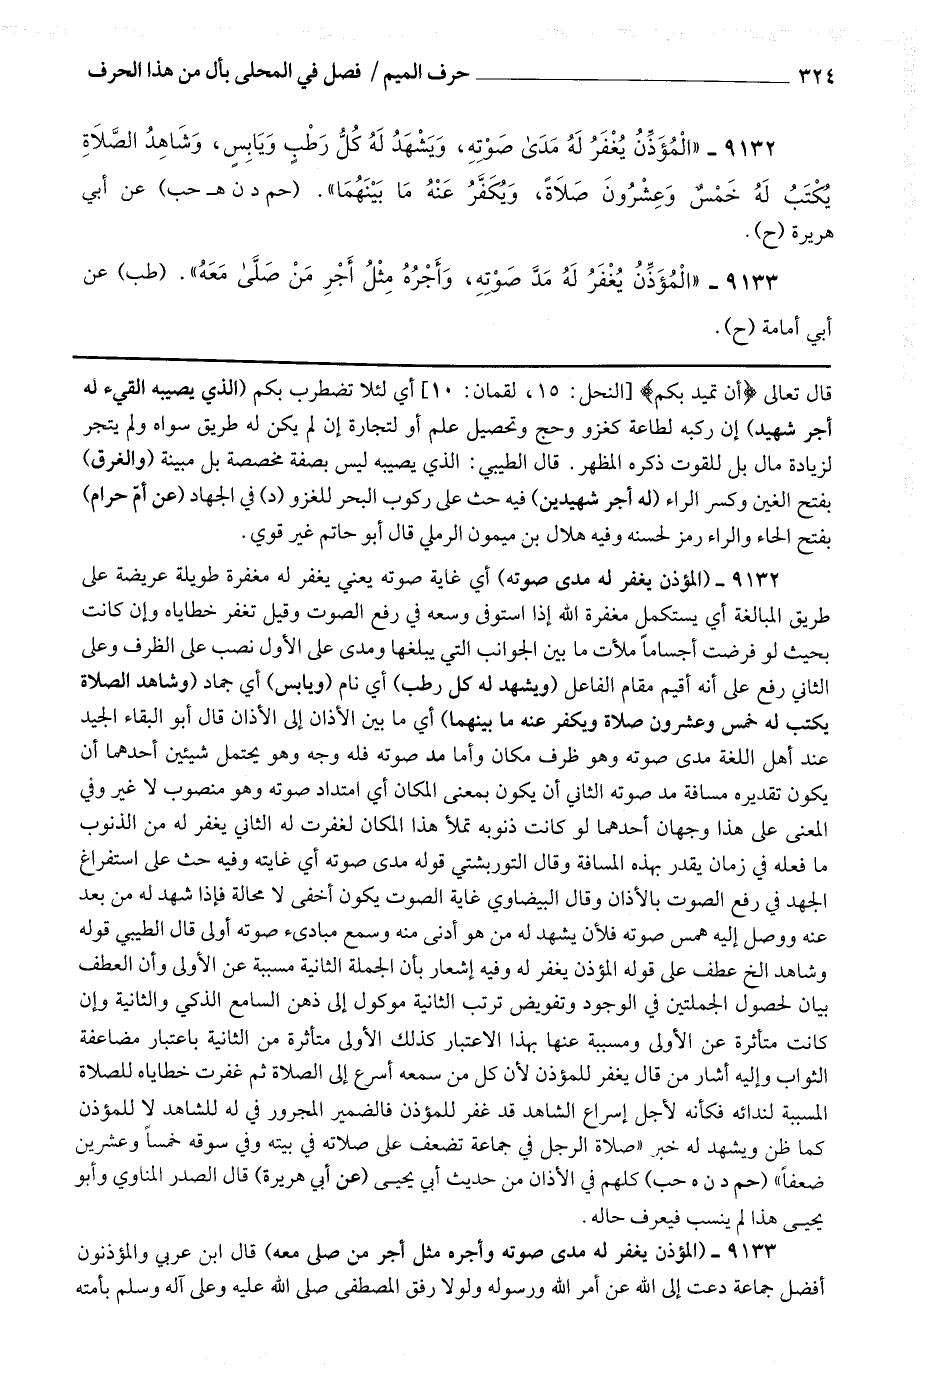 ٣٢٤ ــــــــــــــــــــ حرف الميم / فصل في المحلى بأل من هذا الحرف
٩١٣٢ ـ «الْمُؤَذِّنُ يُغْفَرُ لَهُ مَدَىٰ صَوْتِهِ، وَيَشْهَدُ لَهُ كُلُّ رَطْبٍ وَيَابِسٍ، وَشَاهِدُ الصَّلَاةِ
يُكْتَبُ لَهُ خَمْسٌ وَعِشْرُونَ صَلَاةً، وَيُكَفَّرُ عَنْهُ مَا بَيْنَهُمَا». (حم د ن هـ حب) عن أبي
هريرة (ح).
٩١٣٣ ـ «الْمُؤَذِّنُ يُغْفَرُ لَهُ مَدَّ صَوْتِهِ، وَأَجْرُهُ مِثْلُ أَجْرِ مَنْ صَلَّىٰ مَعَهُ». (طب) عن
أبي أمامة (ح).
قال تعالى ﴿أن تميد بكم﴾ [النحل: ١٥، لقمان: ١٠] أي لئلا تضطرب بكم (الذي يصيبه القيء له
أجر شهيد) إن ركبه لطاعة كغزو وحج وتحصيل علم أو لتجارة إن لم يكن له طريق سواه ولم يتجر
لزيادة مال بل للقوت ذكره المظهر. قال الطيبي: الذي يصيبه ليس بصفة مخصصة بل مبينة (والغرق)
بفتح الغين وكسر الراء (له أجر شهيدين) فيه حث على ركوب البحر للغزو (د) في الجهاد (عن أمّ حرام)
بفتح الحاء والراء رمز لحسنه وفيه هلال بن ميمون الرملي قال أبو حاتم غير قوي.
٩١٣٢ ـ (المؤذن يغفر له مدى صوته) أي غاية صوته يعني يغفر له مغفرة طويلة عريضة على
طريق المبالغة أي يستكمل مغفرة الله إذا استوفى وسعه في رفع الصوت وقيل تغفر خطاياه وإن كانت
بحيث لو فرضت أجساماً ملأت ما بين الجوانب التي يبلغها ومدى على الأول نصب على الظرف وعلى
الثاني رفع على أنه أقيم مقام الفاعل (ويشهد له كل رطب) أي نام (ويابس) أي جماد (وشاهد الصلاة
يكتب له خمس وعشرون صلاة ويكفر عنه ما بينهما) أي ما بين الأذان إلى الأذان قال أبو البقاء الجيد
عند أهل اللغة مدى صوته وهو ظرف مكان وأما مد صوته فله وجه وهو يحتمل شيئين أحدهما أن
يكون تقديره مسافة مد صوته الثاني أن يكون بمعنى المكان أي امتداد صوته وهو منصوب لا غير وفي
المعنى على هذا وجهان أحدهما لو كانت ذنوبه تملأ هذا المكان لغفرت له الثاني يغفر له من الذنوب
ما فعله في زمان يقدر بهذه المسافة وقال التوربشتي قوله مدى صوته أي غايته وفيه حث على استفراغ
الجهد في رفع الصوت بالأذان وقال البيضاوي غاية الصوت يكون أخفى لا محالة فإذا شهد له من بعد
عنه ووصل إليه همس صوته فلأن يشهد له من هو أدنى منه وسمع مبادىء صوته أولى قال الطيبي قوله
وشاهد الخ عطف على قوله المؤذن يغفر له وفيه إشعار بأن الجملة الثانية مسببة عن الأولى وأن العطف
بيان لحصول الجملتين في الوجود وتفويض ترتب الثانية موكول إلى ذهن السامع الذكي والثانية وإن
كانت متأثرة عن الأولى ومسببة عنها بهذا الاعتبار كذلك الأولى متأثرة من الثانية باعتبار مضاعفة
الثواب وإليه أشار من قال يغفر للمؤذن لأن كل من سمعه أسرع إلى الصلاة ثم غفرت خطاياه للصلاة
المسببة لندائه فكأنه لأجل إسراع الشاهد قد غفر للمؤذن فالضمير المجرور في له للشاهد لا للمؤذن
كما ظن ويشهد له خبر «صلاة الرجل في جماعة تضعف على صلاته في بيته وفي سوقه خمساً وعشرين
ضعفاً» (حم د ن ه حب) كلهم في الأذان من حديث أبي يحيـى (عن أبي هريرة) قال الصدر المناوي وأبو
يحيـى هذا لم ينسب فيعرف حاله.
٩١٣٣ ـ (المؤذن يغفر له مدى صوته وأجره مثل أجر من صلى معه) قال ابن عربي والمؤذنون
أفضل جماعة دعت إلى الله عن أمر الله ورسوله ولولا رفق المصطفى صلى الله عليه وعلى آله وسلم بأمته